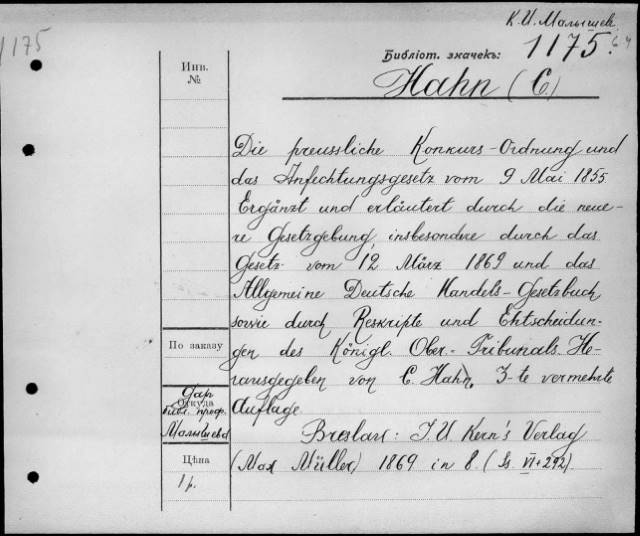 К. И. Малышев.
1175
1175
64
Библіот. значекъ:
Hahn (C.)
Инв.
№
Die preussliche Konkurs-Ordnung und
das Anfechtungsgesetz vom 9 Mai 1855.
Ergänzt und erläutert durch die neue-
re Gesetzgebung, insbesondre durch das
Gesetz vom 12 März 1869 und das
Allgemeine Deutsche Handels-Gesetzbuch
sowie durch Reskripte und Entscheidun-
gen des Königl. Ober-Tribunals. He-
rausgegeben von C. Hahn, 3-te vermehrte
Auflage.
Breslau: J. U. Kern's Verlag
(Max Müller) 1869 in 8. (Ss. VI+292).
По заказу
Откуда
Дар
библ. проф.
Малышева
Цѣна
1 р.